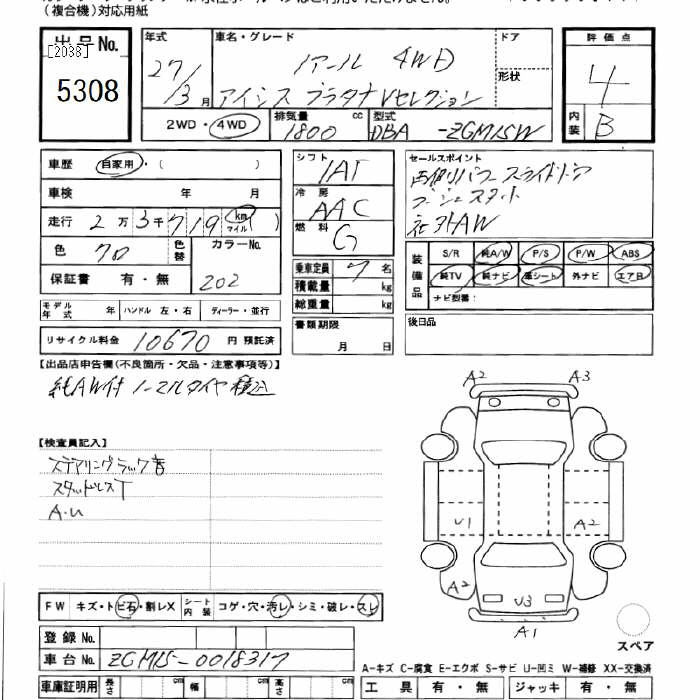 (複合機)対応用紙
出品No.
[2038]
5308
年式 27/3月
車名・グレード ノアール 4WD
アイシス プラタナVセレクション
ドア
形状
2WD・4WD
排気量 1800 cc
型式 DBA -ZGM15W
評価点
4
内装 B
車歴 自家用・( )
車検 年 月
走行 2万3千719 km マイル ( )
色 クロ 色替 カラーNo. 202
保証書 有・無
シフト IAT
冷房 AAC
燃料 G
乗車定員 7名
積載量 kg
総重量 kg
書類期限
月 日
セールスポイント
両側パワースライドドア
プッシュスタート
社外AW
装備品 S/R 純A/W P/S P/W ABS
純TV 純ナビ 革シート 外ナビ エアB
ナビ型番:
後日品
モデル年式 年 ハンドル 左・右 ディーラー・並行
リサイクル料金 10670 円 預託済
【出品店申告欄(不良箇所・欠品・注意事項等)】
純AW付 ノーマルタイヤ積込
【検査員記入】
ステアリングラック音
スタッドレスT
A・U
A2 A3
U1 A2
A2 A2
U3
A1
スペア
FW キズ・トビ石・割レX シート内装 コゲ・穴・汚レ・シミ・破レ・スレ
登録No.
車台No. ZGM15-0018317
車庫証明用 長さ cm 幅 cm 高さ cm
A-キズ C-腐食 E-エクボ S-サビ U-凹ミ W-補修 XX-交換済
工具 有・無 ジャッキ 有・無